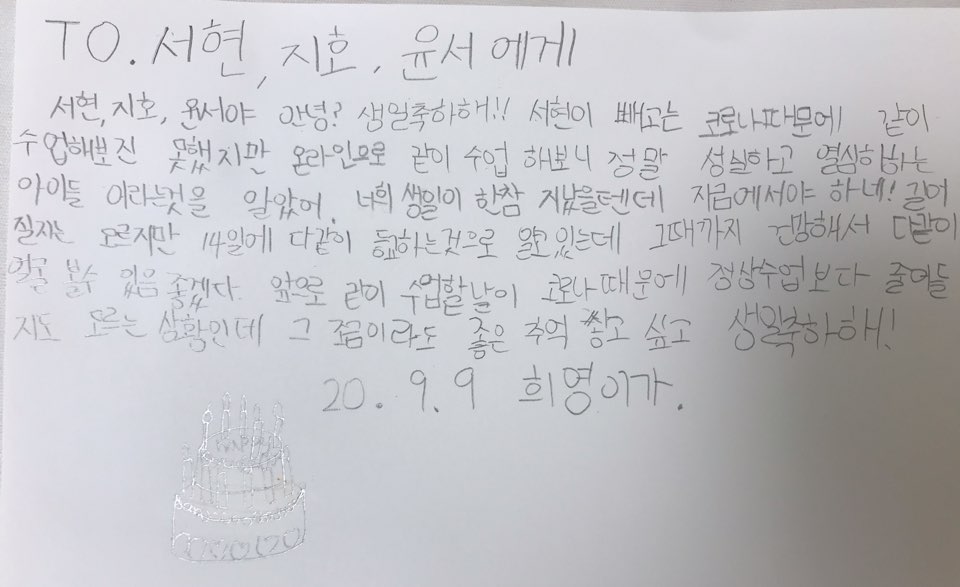 TO. 서현, 지호, 윤서에게
서현, 지호, 윤서야 안녕? 생일축하해!! 서현이 빼고는 코로나때문에 같이
수업해보진 못했지만 온라인으로 같이 수업 해보니 정말 성실하고 열심히하는
아이들 이라는것을 알았어. 너희 생일이 한참 지났을텐데 지금에서야 하네! 길어
질지는 모르지만 14일에 다같이 등교하는것으로 알고있는데 그때까지 건강해서 다같이
얼굴 볼수 있음 좋겠다. 앞으로 같이 수업할날이 코로나때문에 정상수업보다 줄어들
지도 모르는 상황인데 그 조금이라도 좋은 추억 쌓고 싶고 생일축하해!
20. 9. 9 희영이가.